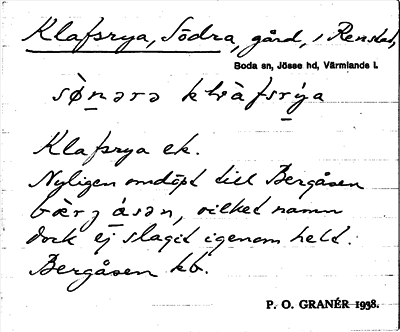 Klafsrya, Södra, gård, i Renstad,
Boda sn, Jösse hd, Värmlands l.
sø̀nərə klàfsrýa
Klafsrya ek.
Nyligen omdöpt till Bergåsen
bærjåsən, vilket namn
dock ej slagit igenom helt.
Bergåsen kb.
P. O. GRANÉR 1938.